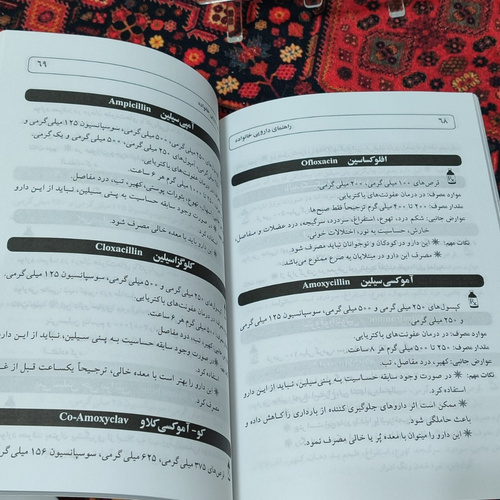 ۶۸
راهنمای دارویی خانواده
افلوکساسین Ofloxacin
قرص‌های ۱۰۰ میلی گرمی، ۲۰۰ میلی گرمی.
موارد مصرف: در درمان عفونت‌های باکتریایی.
مقدار مصرف: ۲۰۰ تا ۴۰۰ میلی گرم ترجیحاً فقط صبح‌ها.
عوارض جانبی: شکم درد، تهوع، استفراغ، سردرد، سرگیجه، درد عضلات و مفاصل،
خارش، حساسیت به نور، اختلالات خونی.
نکات مهم: ✳ این دارو در کودکان و نوجوانان نباید مصرف شود.
✳ مصرف این دارو در مبتلایان به صرع ممنوع می‌باشد.
آموکسی سیلین Amoxycillin
کپسول‌های ۲۵۰ میلی گرمی و ۵۰۰ میلی گرمی، سوسپانسیون ۱۲۵ میلی گرمی
و ۲۵۰ میلی گرمی.
موارد مصرف: در درمان عفونت‌های باکتریایی.
مقدار مصرف: ۲۵۰ تا ۵۰۰ میلی گرم هر ۸ ساعت.
عوارض جانبی: کهیر، درد مفاصل، تب.
نکات مهم: ✳ در صورت وجود سابقه حساسیت به پنی سیلین، نباید از این دارو
استفاده کرد.
✳ ممکن است اثر داروهای جلوگیری کننده از بارداری را کاهش داده و
باعث حاملگی شود.
✳ این دارو را میتوان با معده پُر یا خالی مصرف نمود.
۶۹
خانواده
آمپی سیلین Ampicillin
میلی گرمی، ۵۰۰ میلی گرمی، سوسپانسیون ۱۲۵ میلی
گرمی، آمپول‌های ۲۵۰ میلی گرمی، ۵۰۰ میلی گرمی و یک گرمی.
درمان عفونت‌های باکتریایی.
میلی گرم هر ۶ ساعت.
تهوع، بثورات پوستی، کهیر، تب، درد مفاصل.
صورت وجود سابقه حساسیت به پنی سیلین، نباید از این دارو
کرد.
دارو باید با معده خالی مصرف شود.
کلوگزاسیلین Cloxacillin
۲۵۰ میلی گرمی و ۵۰۰ میلی گرمی، سوسپانسیون ۱۲۵ میلی گرمی.
درمان عفونت‌های باکتریایی.
میلی گرم هر ۶ ساعت.
کهیر، تب، درد مفاصل.
صورت وجود سابقه حساسیت به پنی سیلین، نباید از این دارو
کرد.
این دارو را بهتر است با معده خالی، ترجیحاً یکساعت قبل از غذا
مصرف کرد.
کو - آموکسی کلاو Co-Amoxyclav
قرص‌های ۳۷۵ میلی گرمی، ۶۲۵ میلی گرمی، سوسپانسیون ۱۵۶ میلی گرمی